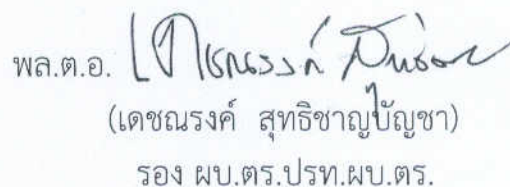 พล.ต.อ.
(เดชณรงค์ สุทธิชาญบัญชา)
รอง ผบ.ตร.ปรท.ผบ.ตร.